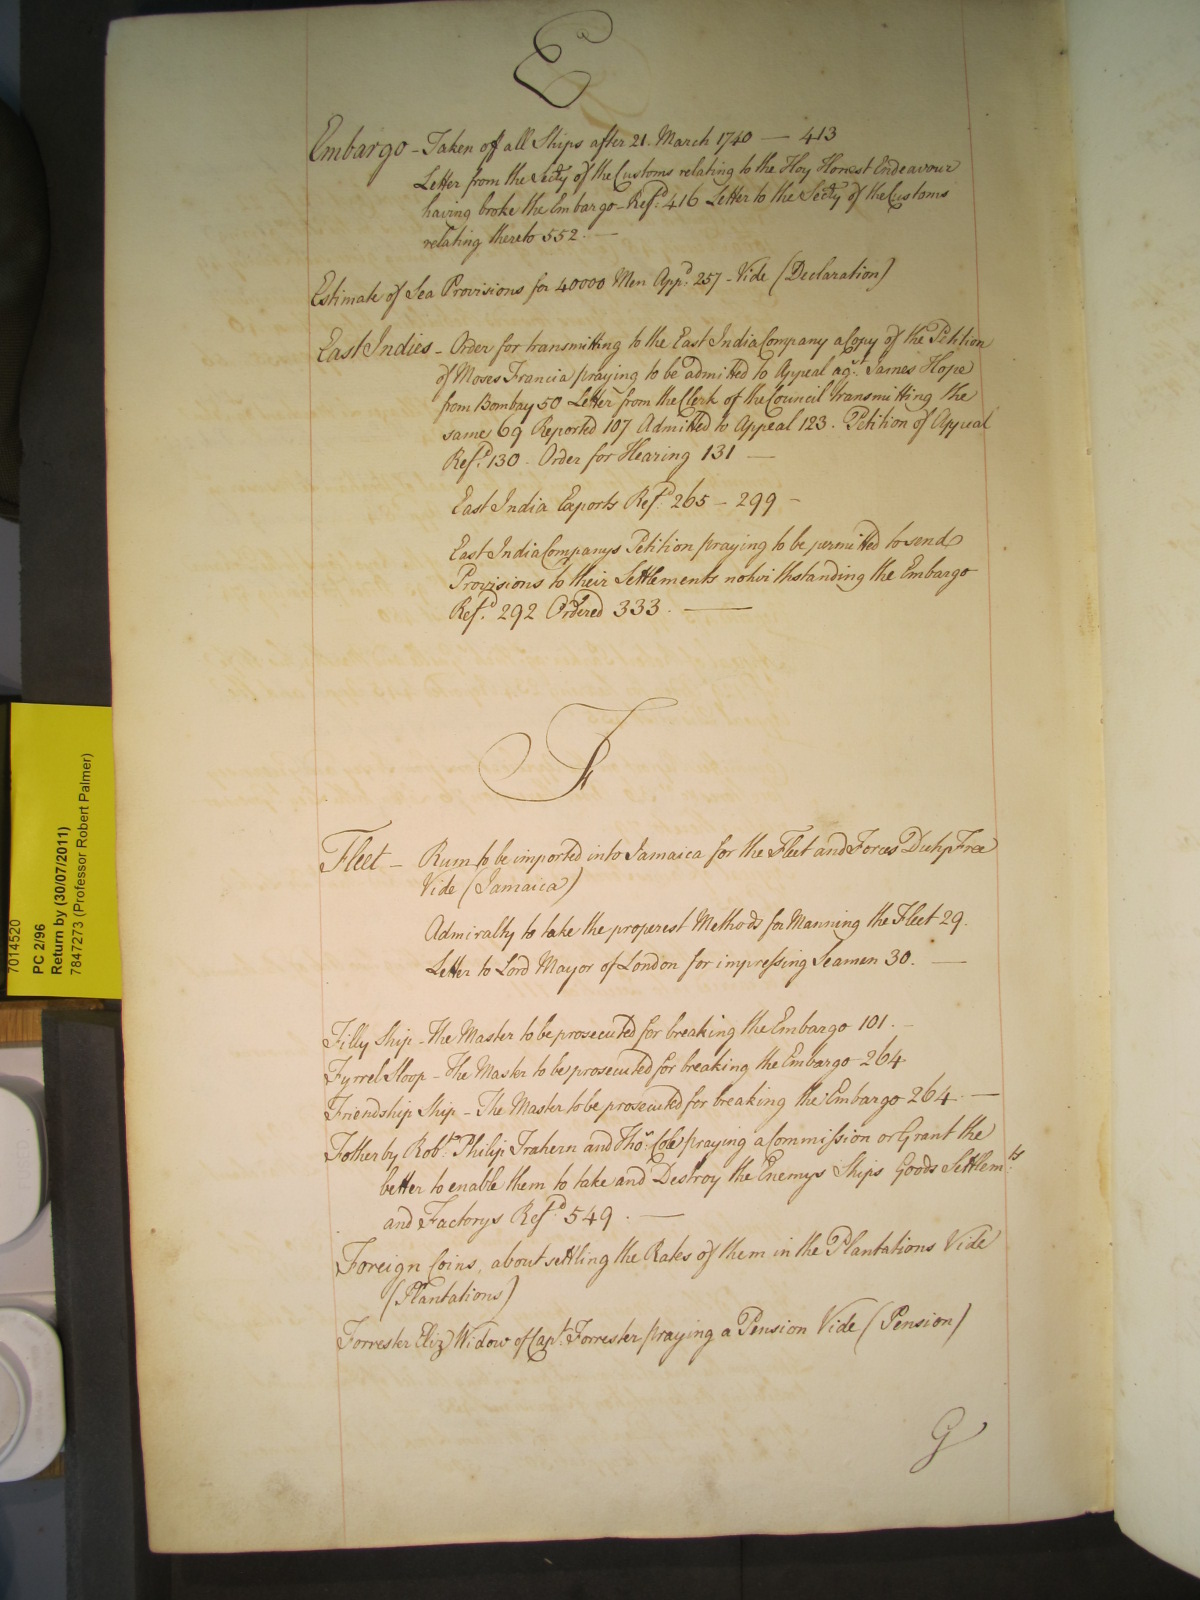 E
Embargo - Taken off all Ships after 21. March 1740 — 413
Letter from the Secty of the Customs relating to the Hoy Honest Endeavour
having broke the Embargo - Ref.d 416 Letter to the Secty of the Customs
relating thereto 552. —
Estimate of Sea Provisions for 40000 Men App.d 257 - Vide (Declaration)
East Indies - Order for transmitting to the East India Company a Copy of the Petition
of Moses Francia praying to be admitted to Appeal ag.st James Hope
from Bombay 50 Letter from the Clerk of the Council transmitting the
same 69 Reported 107 Admitted to Appeal 123. Petition of Appeal
Ref.d 130. Order for Hearing 131 —
East India Exports Ref.d 265 - 299 -
East India Companys Petition praying to be permitted to send
Provisions to their Settlements notwithstanding the Embargo
Ref.d 292 Ordered 333. —
F
Fleet - Rum to be imported into Jamaica for the Fleet and Forces Duty Free
Vide (Jamaica)
Admiralty to take the properest Methods for Manning the Fleet 29.
Letter to Lord Mayor of London for impressing Seamen 30. —
Filly Ship - The Master to be prosecuted for breaking the Embargo 101. -
Fyrrel Sloop - The Master to be prosecuted for breaking the Embargo 264
Friendship Ship - The Master to be prosecuted for breaking the Embargo 264. —
Fotherby Rob.t Philip Trahern and Tho.s Cole praying a Commission or Grant the
better to enable them to take and Destroy the Enemys Ships Goods Settlem.ts
and Factorys Ref.d 549. —
Foreign Coins, about settling the Rates of them in the Plantations Vide
(Plantations)
Forrester Eliz Widow of Cap.t Forrester praying a Pension Vide (Pension)
G
7014520
PC 2/96
Return by (30/07/2011)
7847273 (Professor Robert Palmer)